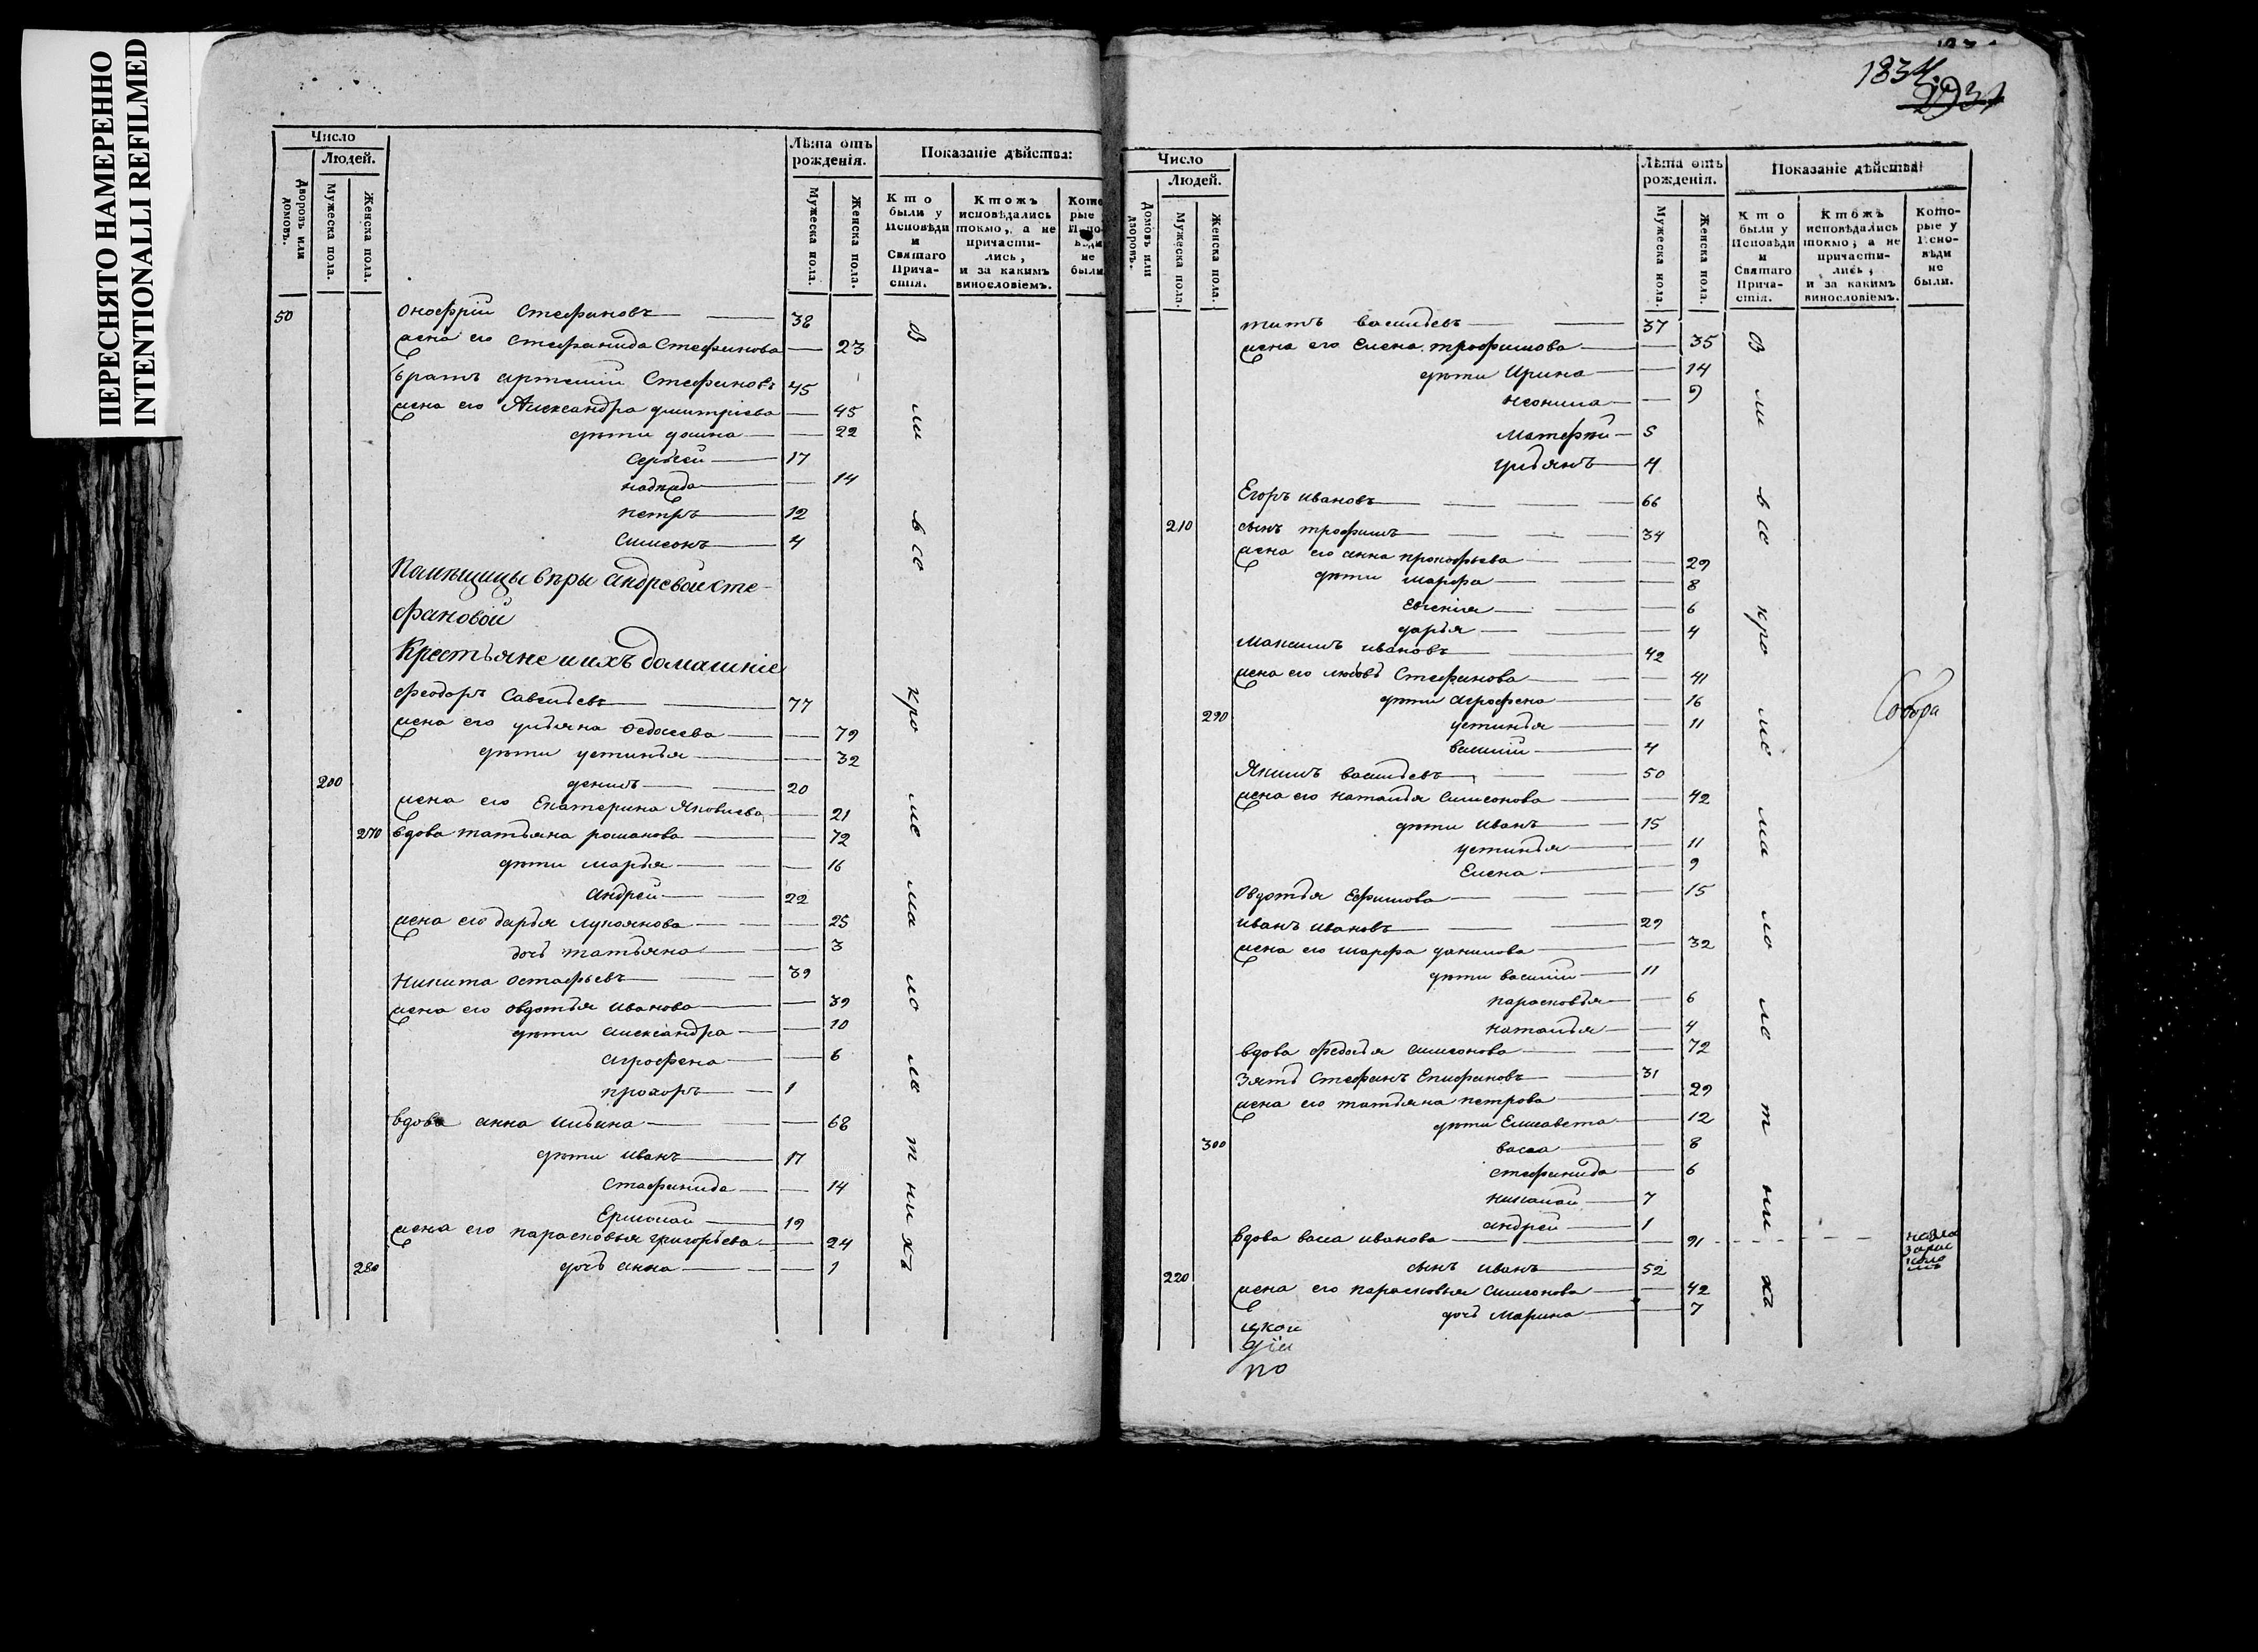 ПЕРЕСНЯТО НАМЕРЕННО
INTENTIONALLI REFILMED
Число
Людей.
Дворовъ или домовъ.
Мужеска пола.
Женска пола.
Лѣта отъ рожденія.
Мужеска пола.
Женска пола.
Показаніе дѣйства:
Кто были у Исповѣди и Святаго Прича-стія.
Ктожъ исповѣдались токмо, а не причасти-лись, и за какимъ винословіемъ.
не были
50 Онофрій Стефановъ 38
жена его Стефанида Стефанова 23
братъ артемій Стефановъ 45
жена его Александра дмитріева 45
дѣти домна 22
Сергѣй 17
надежда 14
петръ 12
Симеонъ 4
Помѣщицы андревой Сте-
фановой
Крестьяне и ихъ домашніе
Феодоръ Савельевъ 77
жена его ульяна Федосеева 79
дѣти устинья 32
200 денисъ 20
жена его Екатерина Яковлева 21
270 вдова татьяна романова 72
дѣти марья 16
андрей 22
жена его дарья лукоянова 25
дочь татьяна 3
Никита остафьевъ 39
жена его овдотья иванова 39
дѣти александра 10
агрофена 6
прохоръ 1
вдова анна ильина 68
дѣти иванъ 17
Стефанида 14
Ермолай 19
жена его парасковья григорьева 24
280 дочь анна 1
В ли в со кро ме ма ло ле т ни хъ
1834.
Число
Людей.
Домовъ или дворовъ.
Мужеска пола.
Женска пола.
Лѣта отъ рожденія.
Мужеска пола.
Женска пола.
Показаніе дѣйства
Кто были у Исповѣди и Святаго Прича-стія.
Ктожъ исповѣдались токмо, а не причасти-лись, и за какимъ винословіемъ.
Кото-рые у Испо-вѣди не были.
титъ васильевъ 37
жена его Елена трофимова 35
дѣти Ирина 14
неонила 9
матфей 5
ульянъ 4
Егоръ ивановъ 66
210 сынъ трофимъ 34
жена его анна прокофьева 29
дѣти марфа 8
Евгенія 6
дарья 4
Максимъ ивановъ 42
жена его любовь Стефанова 41
дѣти агрофена 16
290 устинья 11
василий 4
Якимъ васильевъ 50
жена его наталья симеонова 42
дѣти иванъ 15
устинья 11
Елена 9
Овдотья Ефимова 15
иванъ ивановъ 29
жена его марфа данилова 32
дѣти василий 11
парасковья 6
наталья 4
вдова федосья симеонова 72
Зять Стефанъ Епифановъ 31
жена его татьяна петрова 29
дѣти Елисавета 12
300 васса 8
стефанида 6
николай 7
андрей 1
вдова васса иванова 91
сынъ иванъ 52
220
жена его парасковья симеонова 42
дочь Марина 7
В ли в со кро ме ма ло ле т ни хъ
по